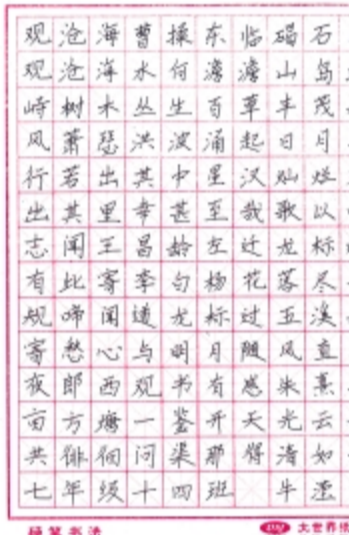 观沧海曹操东临碣石
观沧海水何澹澹山岛
峙树木丛生百草丰茂
风萧瑟洪波涌起日月
行若出其中星汉灿烂
出其里幸甚至哉歌以
志闻王昌龄左迁龙标
有此寄李白杨花落尽
规啼闻道龙标过五溪
寄愁心与明月随风直
夜郎西观书有感朱熹
亩方塘一鉴开天光云
共徘徊问渠那得清如
七年级十四班 牛滢
硬笔书法 大世界纸